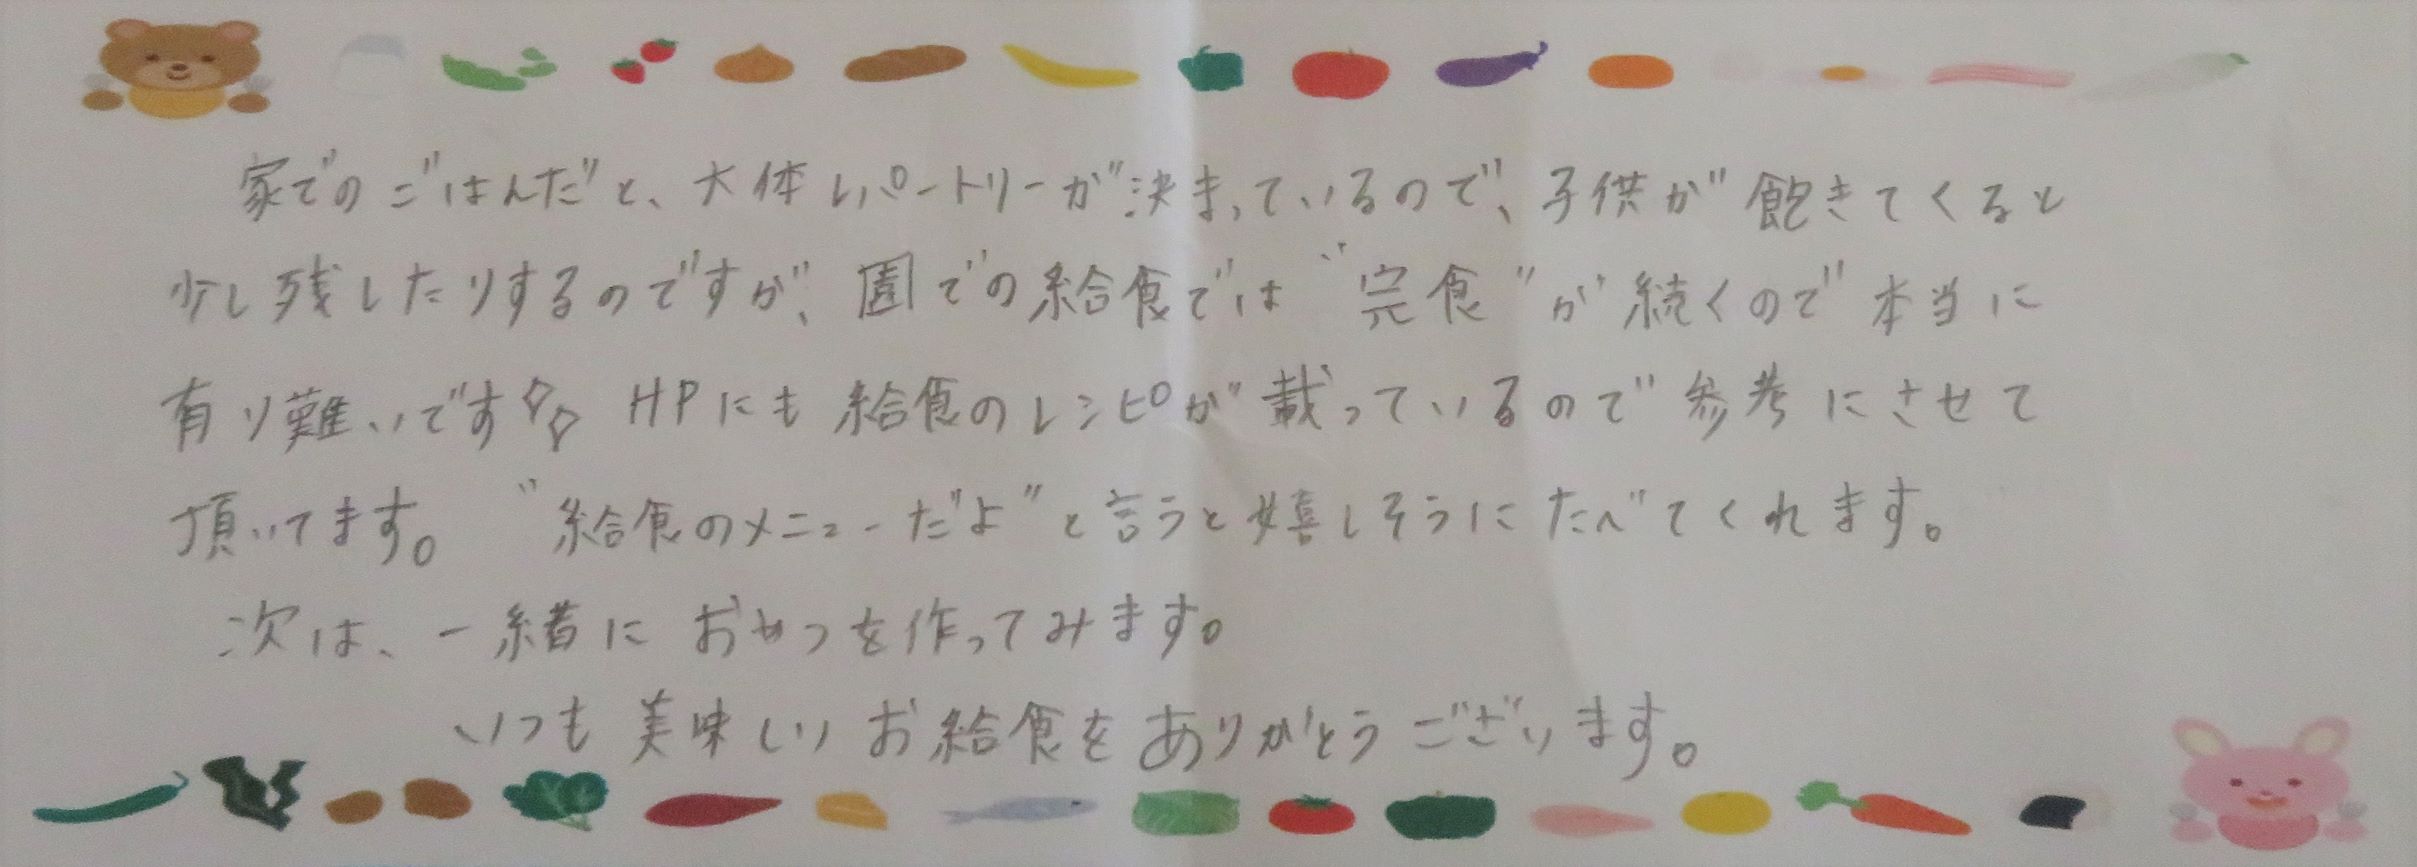 家でのごはんだと、大体レパートリーが決まっているので、子供が飽きてくると
少し残したりするのですが、園での給食では〝完食〟が続くので本当に
有り難いです HPにも給食のレシピが載っているので参考にさせて
頂いてます。〝給食のメニューだよ〟と言うと嬉しそうにたべてくれます。
次は、一緒におやつを作ってみます。
いつも美味しいお給食をありがとうございます。